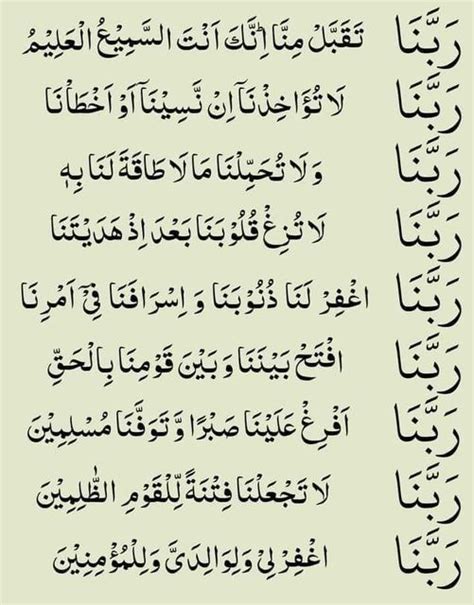 رَبَّنَا تَقَبَّلْ مِنَّا اِنَّكَ اَنْتَ السَّمِيْعُ الْعَلِيْمُ
رَبَّنَا لَا تُؤَاخِذْنَاۤ اِنْ نَّسِيْنَاۤ اَوْ اَخْطَاْنَا
رَبَّنَا وَلَا تُحَمِّلْنَا مَا لَا طَاقَةَ لَنَا بِهٖ
رَبَّنَا لَا تُزِغْ قُلُوْبَنَا بَعْدَ اِذْ هَدَيْتَنَا
رَبَّنَا اغْفِرْ لَنَا ذُنُوْبَنَا وَ اِسْرَافَنَا فِيْۤ اَمْرِنَا
رَبَّنَا افْتَحْ بَيْنَنَا وَ بَيْنَ قَوْمِنَا بِالْحَقِّ
رَبَّنَا اَفْرِغْ عَلَيْنَا صَبْرًا وَّ تَوَفَّنَا مُسْلِمِيْنَ
رَبَّنَا لَا تَجْعَلْنَا فِتْنَةً لِّلْقَوْمِ الظّٰلِمِيْنَ
رَبَّنَا اغْفِرْ لِيْ وَلِوَالِدَيَّ وَلِلْمُؤْمِنِيْنَ